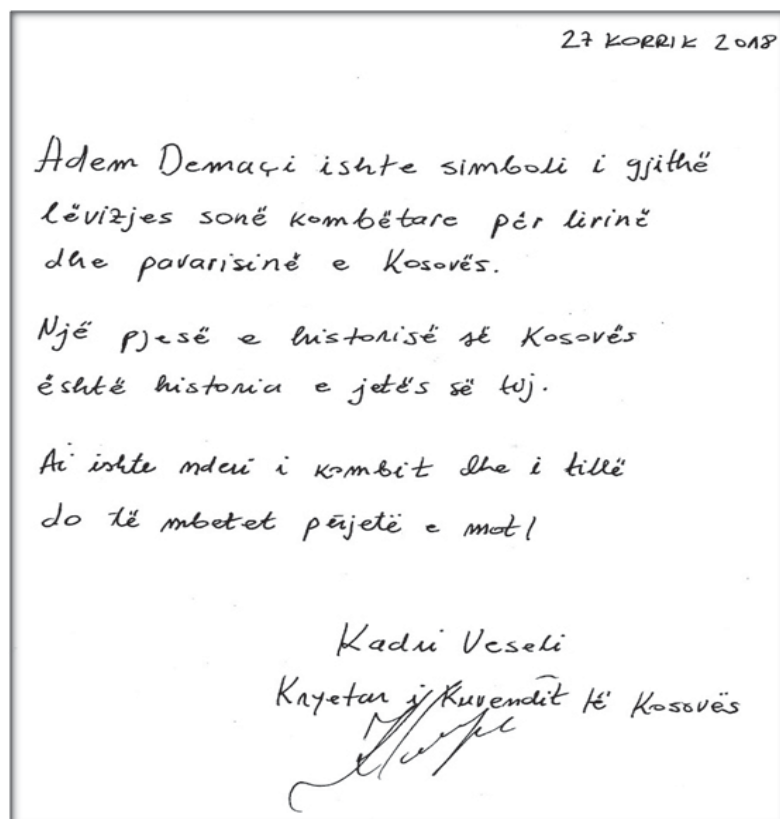 27 KORRIK 2018
Adem Demaçi ishte simboli i gjithë
lëvizjes sonë kombëtare për lirinë
dhe pavarisinë e Kosovës.
Një pjesë e historisë së Kosovës
është historia e jetës së tij.
Ai ishte nderi i kombit dhe i tillë
do të mbetet përjetë e mot!
Kadri Veseli
Kryetar i Kuvendit të Kosovës